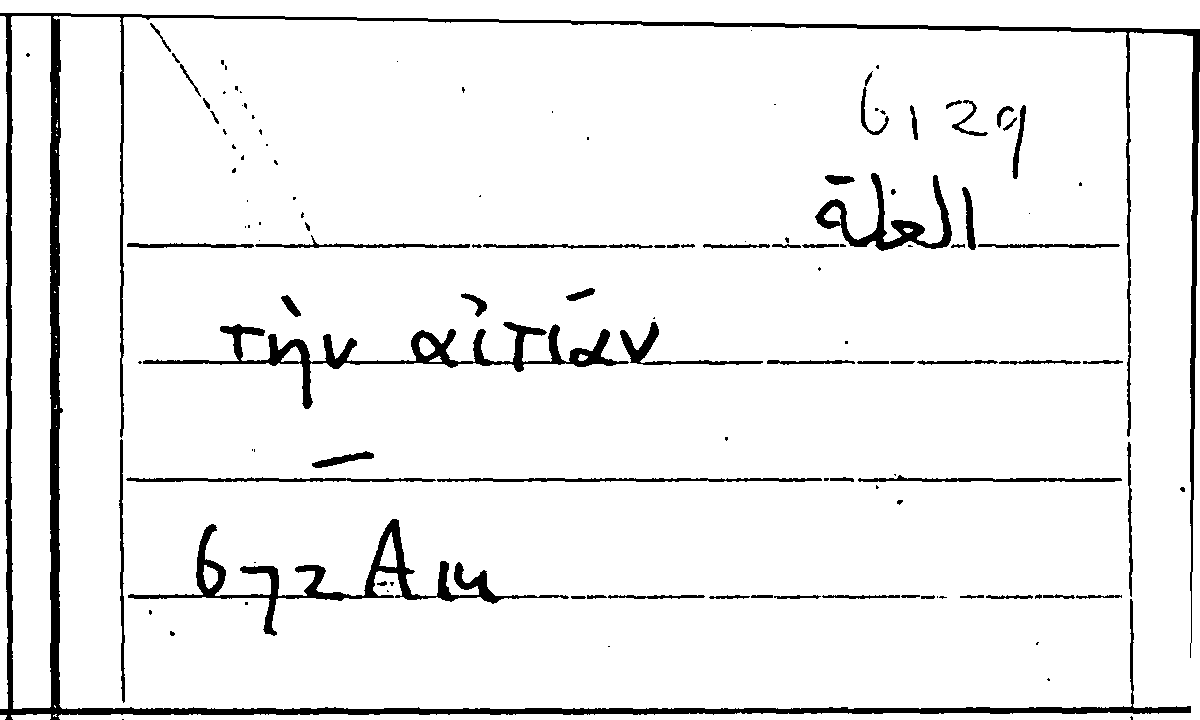 6129
العلة
τὴν αἰτίαν
—
672 A 14